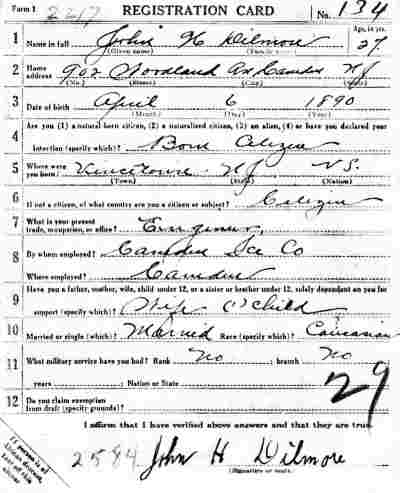 Form 1 2217 REGISTRATION CARD No. 134
1 Name in full John H Dilmore Age, in yrs. 27
(Given name) (Family name)
2 Home address 902 Woodland Av Camden NJ
(No.) (Street) (City) (State)
3 Date of birth April 6 1890
(Month) (Day) (Year)
4 Are you (1) a natural born citizen, (2) a naturalized citizen, (3) an alien, (4) or have you declared your
intention (specify which)? Born Citizen
5 Where were you born? Vincetown NJ US.
(Town) (State) (Nation)
6 If not a citizen, of what country are you a citizen or subject? Citizen
7 What is your present trade, occupation, or office? Engineer
8 By whom employed? Camden Ice Co
Where employed? Camden
9 Have you a father, mother, wife, child under 12, or a sister or brother under 12, solely dependent on you for
support (specify which)? Wife & child
10 Married or single (which)? Married Race (specify which)? Caucasian
11 What military service have you had? Rank No ; branch No
years ; Nation or State
29
12 Do you claim exemption from draft (specify grounds)?
I affirm that I have verified above answers and that they are true.
2584 John H Dilmore
(Signature or mark)
If person is of African descent, tear off this corner